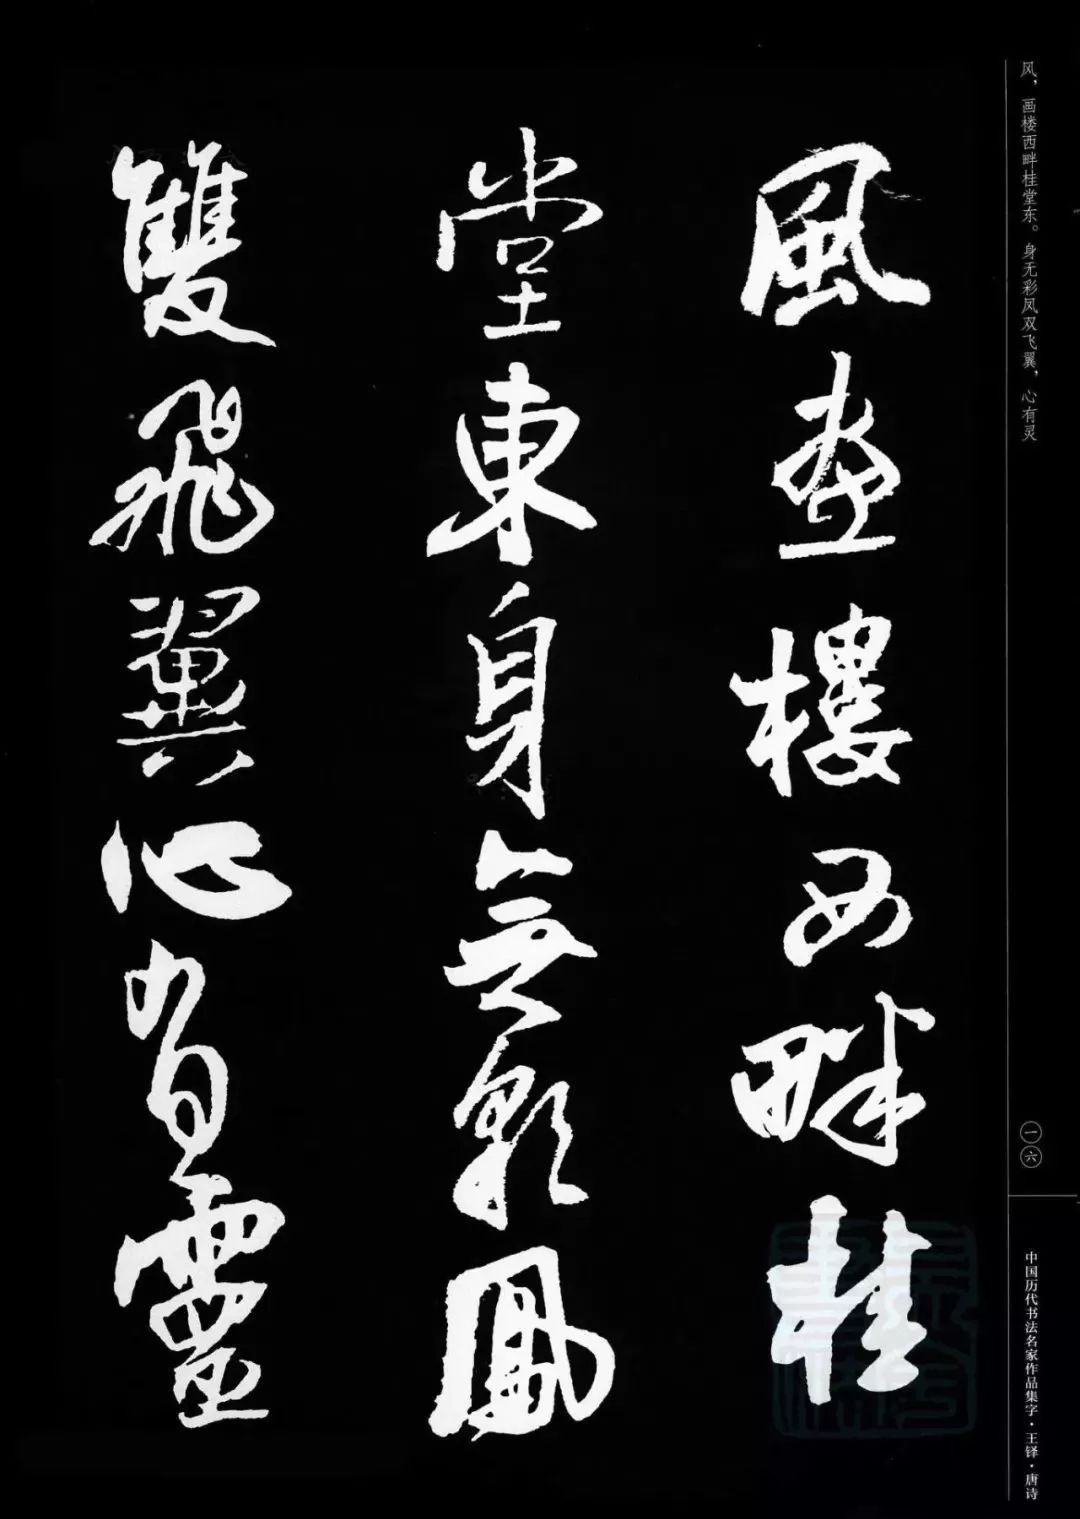 风，画楼西畔桂堂东。身无彩凤双飞翼，心有灵
風畫樓西畔桂
堂東身無彩鳳
雙飛翼心有靈
一六
中国历代书法名家作品集字·王铎·唐诗